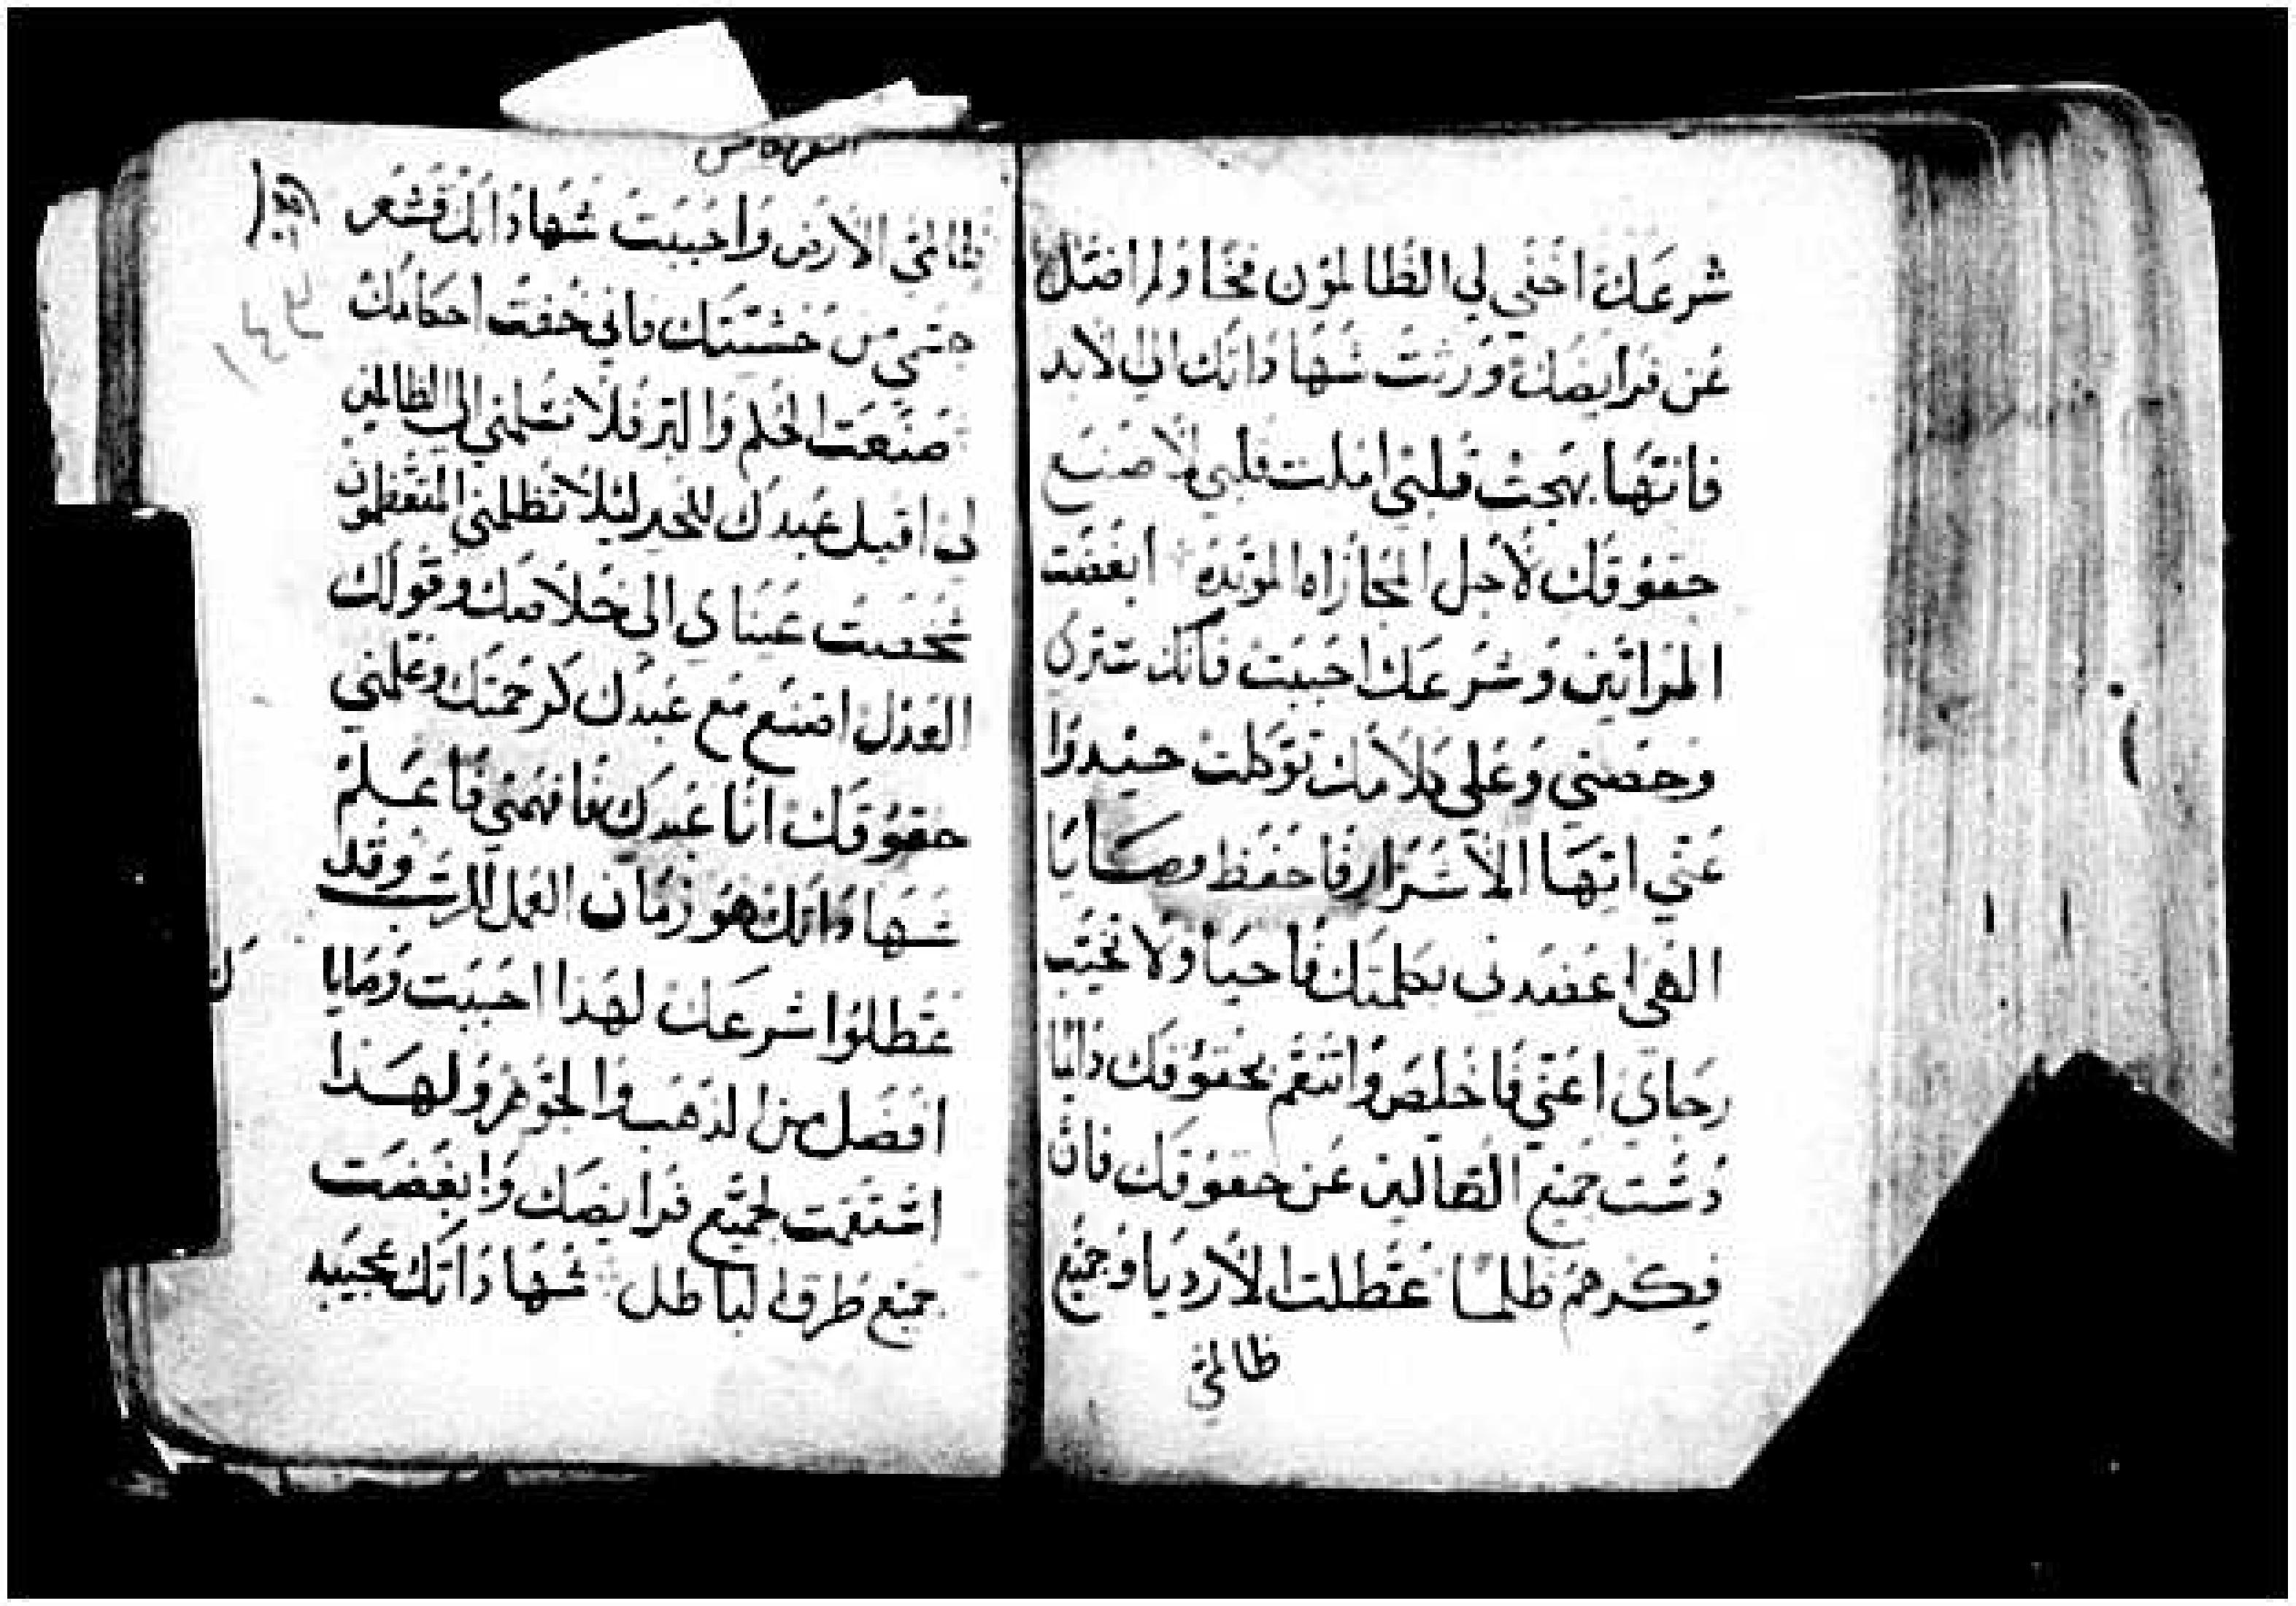 شرعك اخفي لي الظالمون فخا ولم اضل
عن فرايضك ورثت شهاداتك الي الابد
فانها بهجت قلبي املت قلبي لاصنع
حقوقك لاجل المجازاه الموبده ابغضت
المراتين وشرعك احببت فانك سترى
وحصني وعلى كلامك توكلت حيدوا
عني ايها الاشرار فاحفظ وصايا
الهي اعضدني بكلمتك فاحيا ولا تخيب
رجاي اعني فاخلص واتنغم بحقوقك دايما
دست جميع الضالين عن حقوقك فان
فكرهم ظلما عطلت الارديا وجميع
ظالمي
ظالمي الارض واحببت شهاداتك فشعر
جسمي من خشيتك فاني خفت احكامك
صنعت الحكم والبر فلا تسلمني الي الظالمين
لي اقبل عبدك للخير ليلا تظلمني المتعظمون
شخصت عيناي الى خلاصك وقولك
العدل اصنع مع عبدك كرحمتك وعلمني
حقوقك انا عبدك فافهمني فاعلم
شهاداتك هو زمان العمل للرب وقد
عطلوا شرعك لهذا احببت وصايا
ك
افضل من الذهب والجوهر ولهذا
استقمت لجميع فرايضك وابغضت
جميع طرق الباطل شهاداتك عجيبه